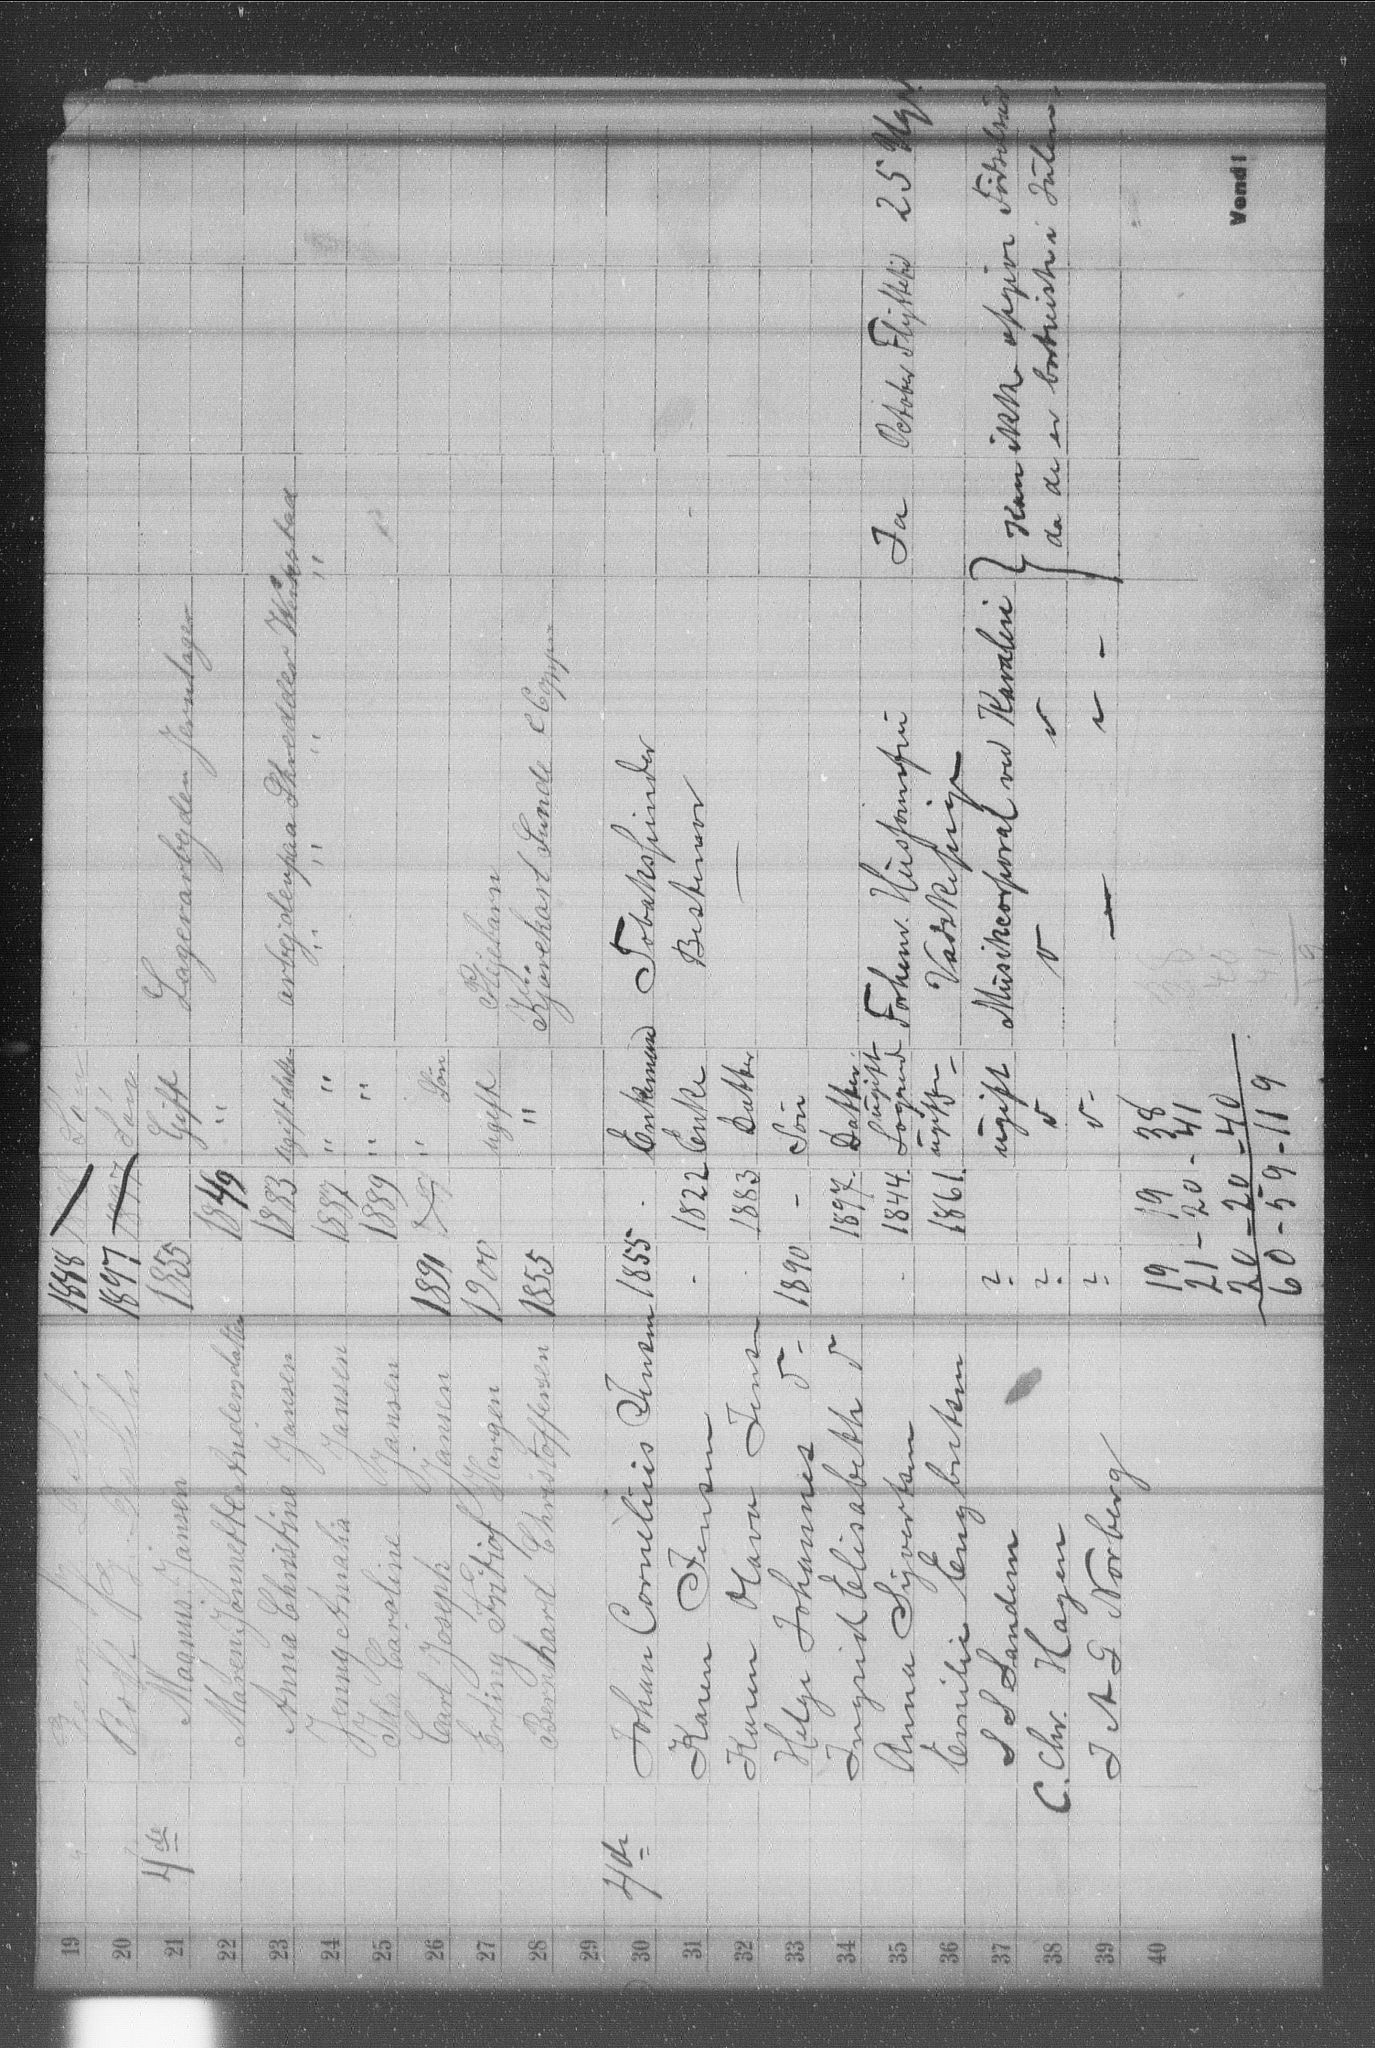 19 1888 Sön
20 1897 Sön
4de 21 Magnus Jansen 1855 Gift Lagerarbeyder Jernlager
22 Maren Jeanette Andersdatter 1849 "
23 Anna Christine Jansen 1883 ugift datter arbejder paa Skredder
24 Jenny Amalia Jansen 1887 " " " " " "
25 Ida Caroline Jansen 1889 " "
26 Carl Joseph Jansen 1891 " Sön
27 Erling Fritiof Hargen 1900 ugift Plejebarn
28 Bernhard Christoffersen 1855 " Kjörekarl
29
4de 30 Johan Cornelius Jensen 1855 . Enkemand Tobakspinder
31 Karen Jensen - 1822 Enke Bestemor
32 Mava Jensen . 1883 Datter —
33 Helge Johannes 1890 - Sön
34 Ingrid Elisabeth 1897 Datter
35 Anna Syvertsen . 1844 ugift Logerende Forhenv. Husjomfru Ja October Flyttetid 25
36 Emilie Engbretsen 1861 ugift - Vaskepige
37 S Sandem ? ugift Musikcorporal ved Kavaleri } Kan ikke opgive Födselsaar
38 C. Chr. Hagen ? da de er bortreiste i Julen.
39 J A G Norberg ? -
40
19 19 38
21 - 20 - 41
20 - 20 - 40
60 - 59 - 119
Vend!